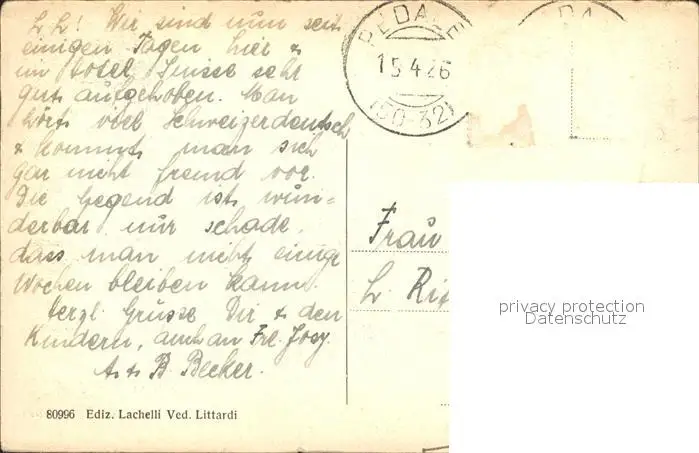 L. L.! Wir sind nun seit
einigen Tagen hier &
im Hotel Suisse sehr
gut aufgehoben. Man
hört viel Schweizerdeutsch
& kommt man sich
gar nicht fremd vor.
Die Gegend ist wun=
derbar, nur schade,
dass man nicht einige
Wochen bleiben kann.
Herzl. Grüsse Dir & den
Kindern, auch an Frl. Josy.
B. Becker.
80996 Ediz. Lachelli Ved. Littardi
PEDALE
15.4.26
(30-32)
Frau
L. Rit
privacy protection
Datenschutz